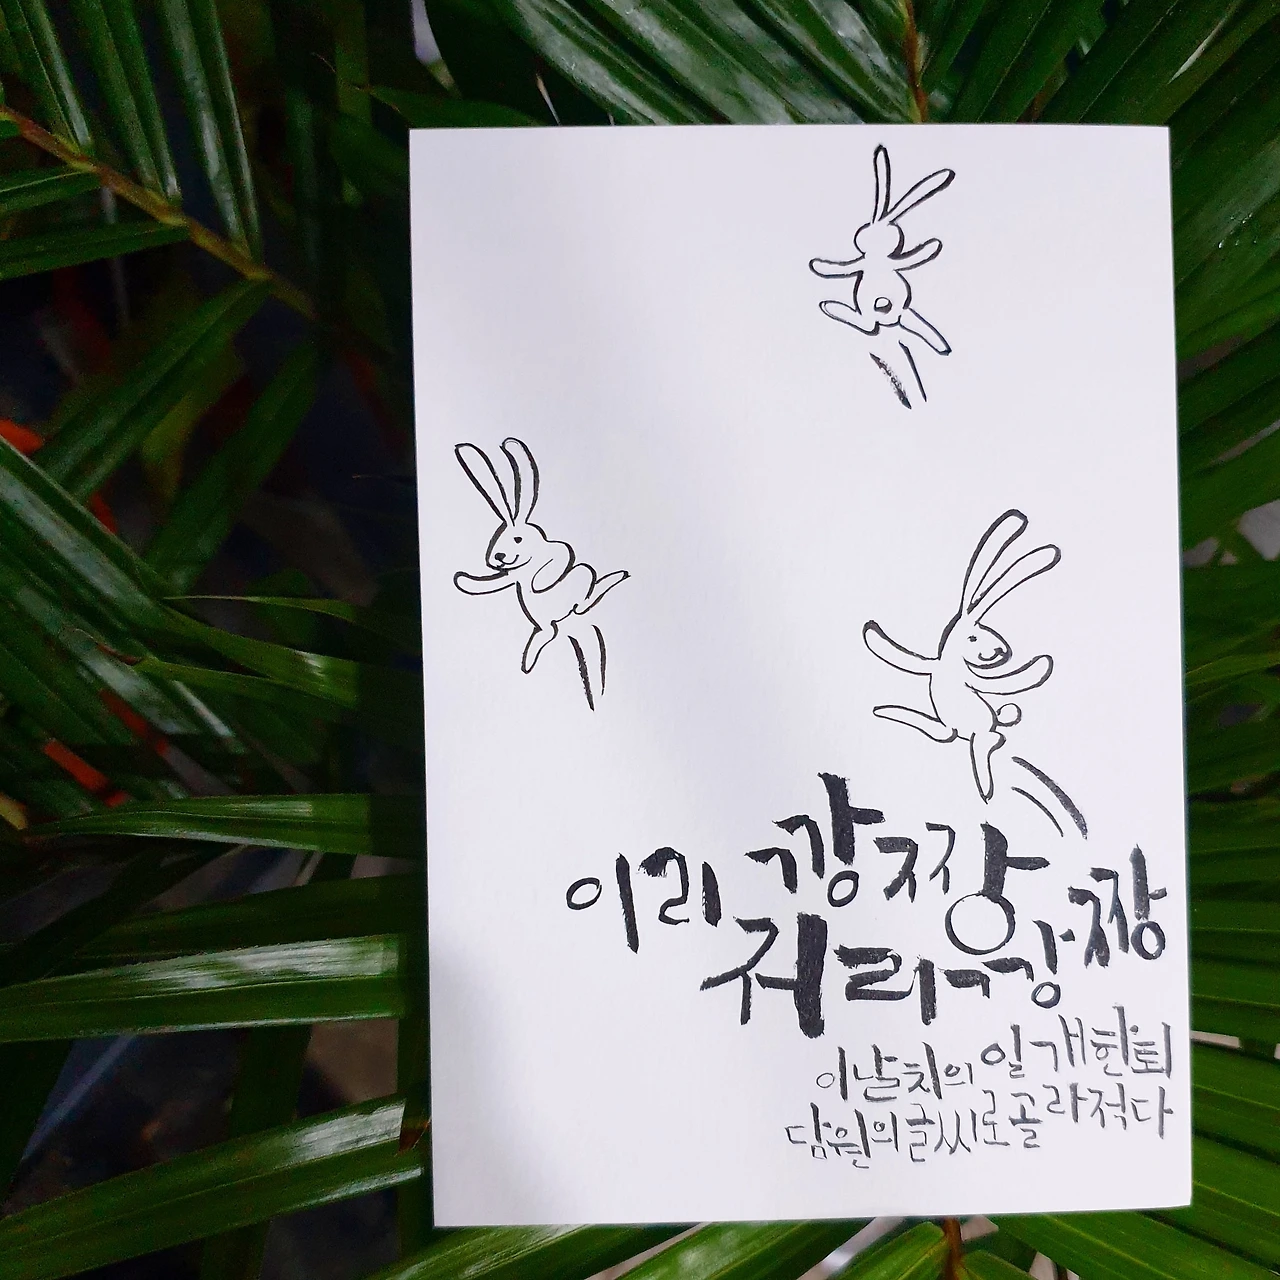 이리 깡짱
저리 깡짱
이날치의 일개한퇴
담원의 글씨로 골라적다